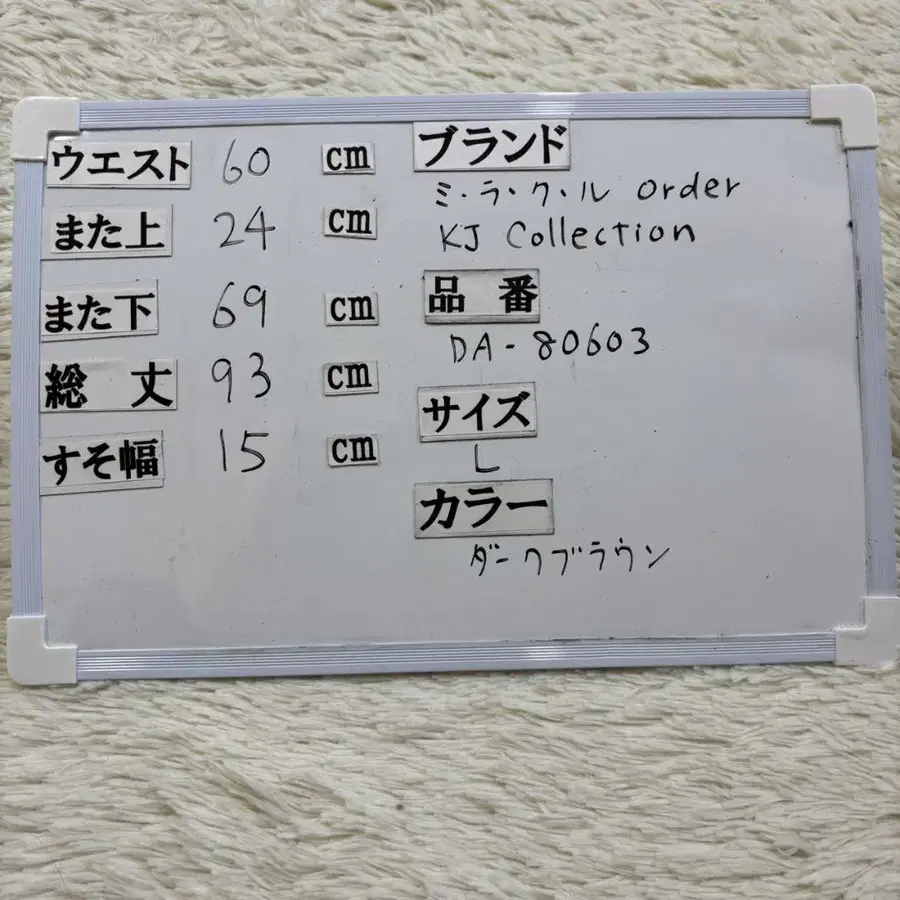 ウエスト 60 cm
また上 24 cm
また下 69 cm
総丈 93 cm
すそ幅 15 cm
ブランド
ミ・ラ・ク・ル order
KJ Collection
品番
DA-80603
サイズ
L
カラー
ダークブラウン